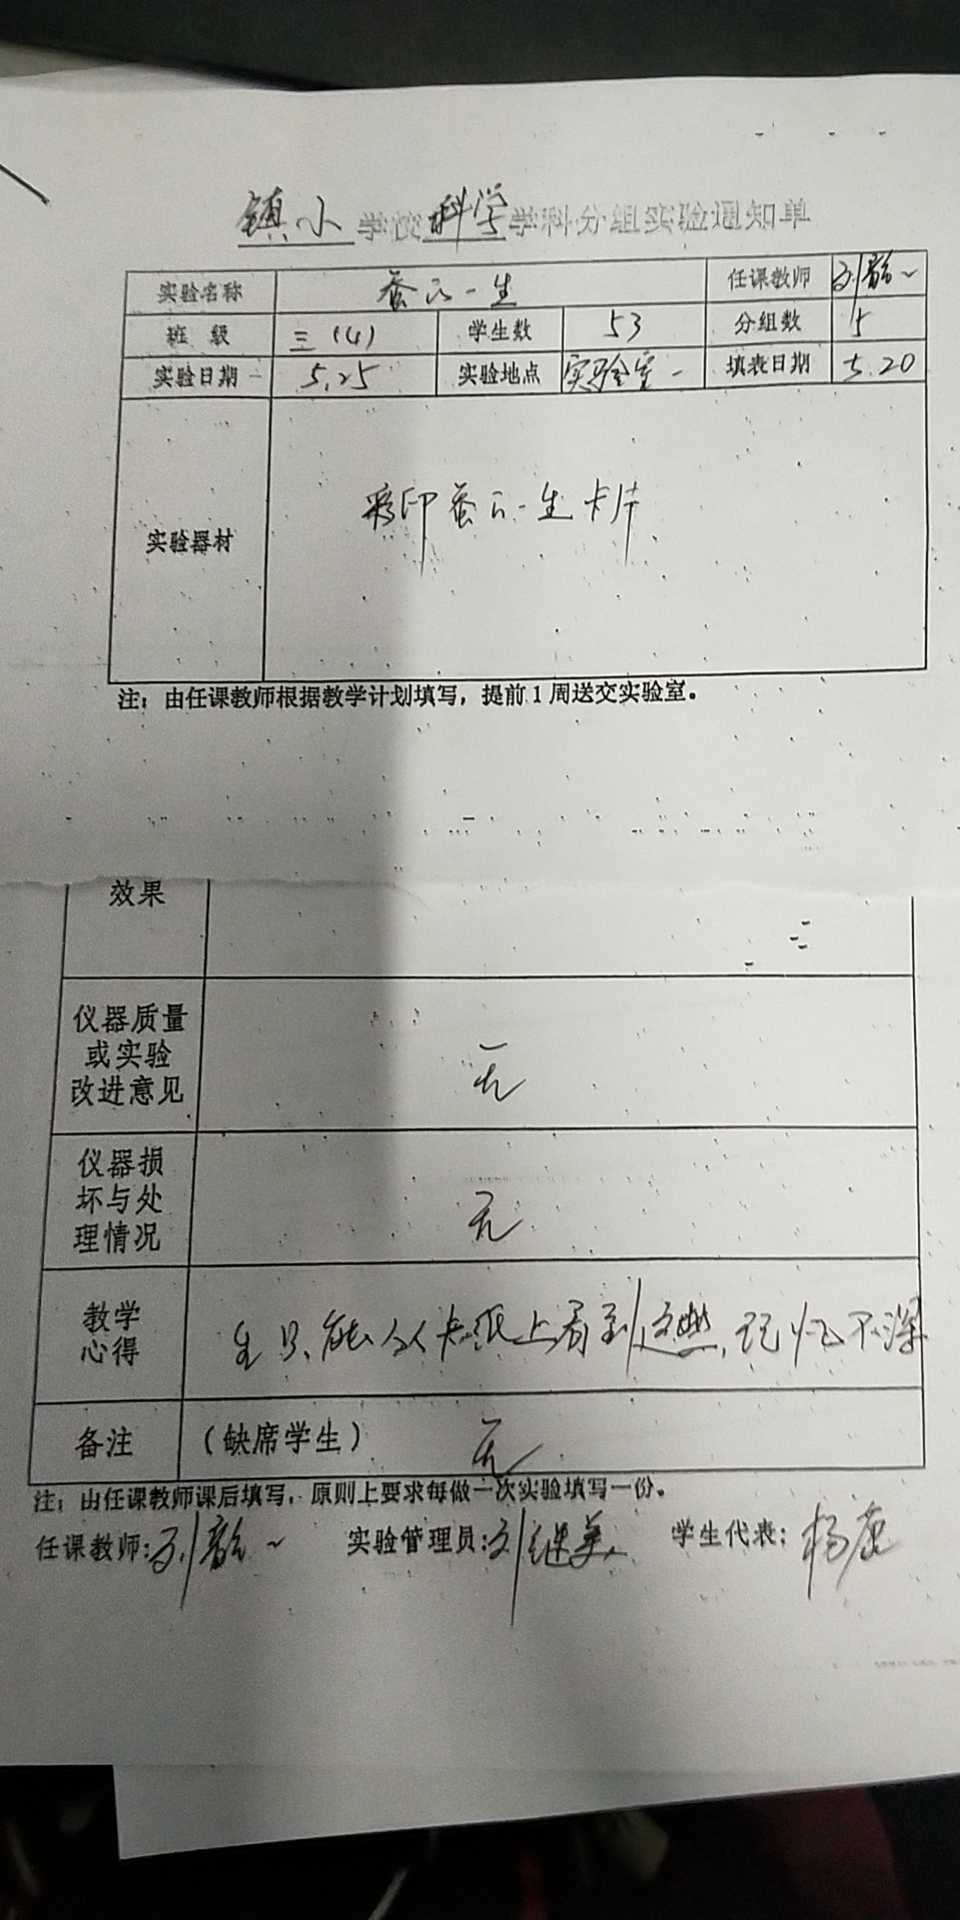 镇小 学校 科学 学科分组实验通知单
实验名称 蚕的一生 任课教师 刘
班 级 三(4) 学生数 53 分组数 5
实验日期 5.25 实验地点 实验室一 填表日期 5.20
实验器材 彩印蚕的一生卡片
注：由任课教师根据教学计划填写，提前1周送交实验室。
效果
仪器质量
或实验
改进意见 无
仪器损
坏与处
理情况 无
教学
心得 生只能从卡纸上看到这些，记忆不深
备注 （缺席学生） 无
注：由任课教师课后填写，原则上要求每做一次实验填写一份。
任课教师：刘 实验管理员：刘继美 学生代表：杨康